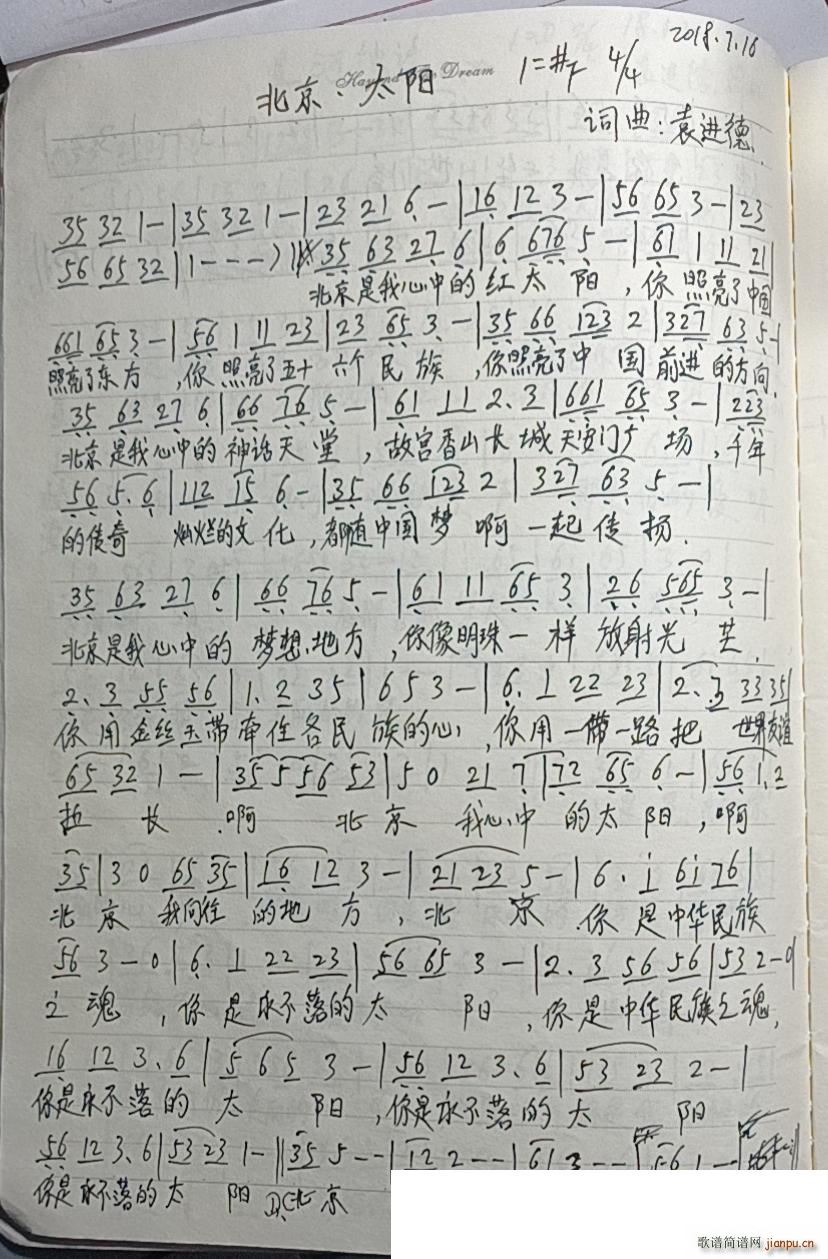 2018.7.16
北京·太阳 Dream 1=#F 4/4
词曲:袁进德
35 32 1-|35 32 1-|23 21 6-|16 12 3-|56 65 3-|23
56 65 32|1---)|35 63 27 6|6 676 5-|61 1 11 21|
北京是我心中的红太阳,你照亮了中国
661 65 3-|56 1 11 23|23 65 3-|35 66 123 2|327 63 5-|
照亮了东方,你照亮了五十六个民族,你照亮了中国前进的方向
35 63 27 6|66 76 5-|61 11 2.3|661 65 3-|223
北京是我心中的神话天堂,故宫香山长城天安门广场,千年
56 5.6|112 15 6-|35 66 123 2|327 63 5-|
的传奇 灿烂的文化,都随中国梦啊一起传扬.
35 63 27 6|66 76 5-|61 11 65 3|26 565 3-|
北京是我心中的梦想地方,你像明珠一样放射光芒.
2.3 55 56|1.2 35|653-|6.1 22 23|2.3 33 35|
你用金丝玉带牵住各民族的心,你用一带一路把世界友谊
65 32 1-|35 5 56 53|5 0 21 7|72 65 6-|56 1.2
拉长 啊 北京 我心中的太阳,啊
35|3 0 65 35|16 12 3-|21 23 5-|6.i 6i 76|
北京 我向往的地方,北京 你是中华民族
56 3-0|6.1 22 23|56 65 3-|2.3 56 56|53 2-0|
之魂,你是永不落的太阳,你是中华民族之魂,
16 12 3.6|5 6 5 3-|56 12 3.6|53 23 2-|
你是永不落的太阳,你是永不落的太阳
56 12 3.6|53 23 1-||35 5--|12 2--|61 3--|56 1--|
你是永不落的太阳 D.C北京
歌谱简谱网
jianpu.cn